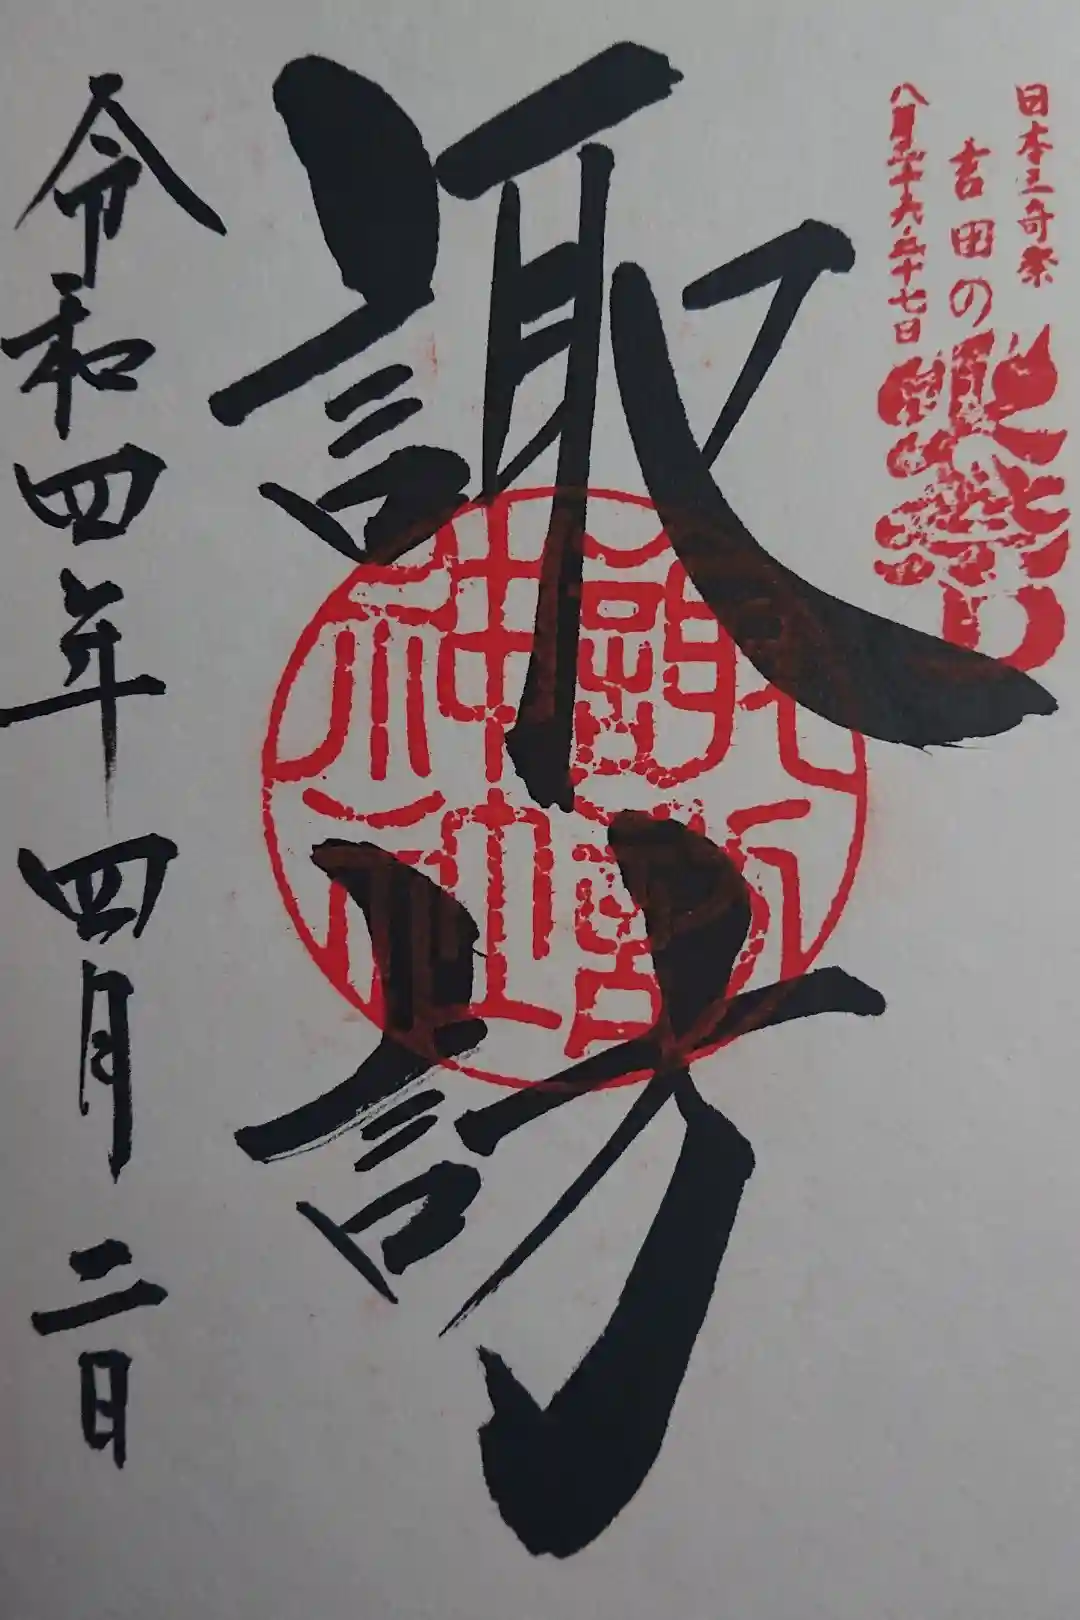 日本三奇祭
吉田の火祭り
八月二十六・二十七日
諏訪
諏訪神社
令和四年四月二日